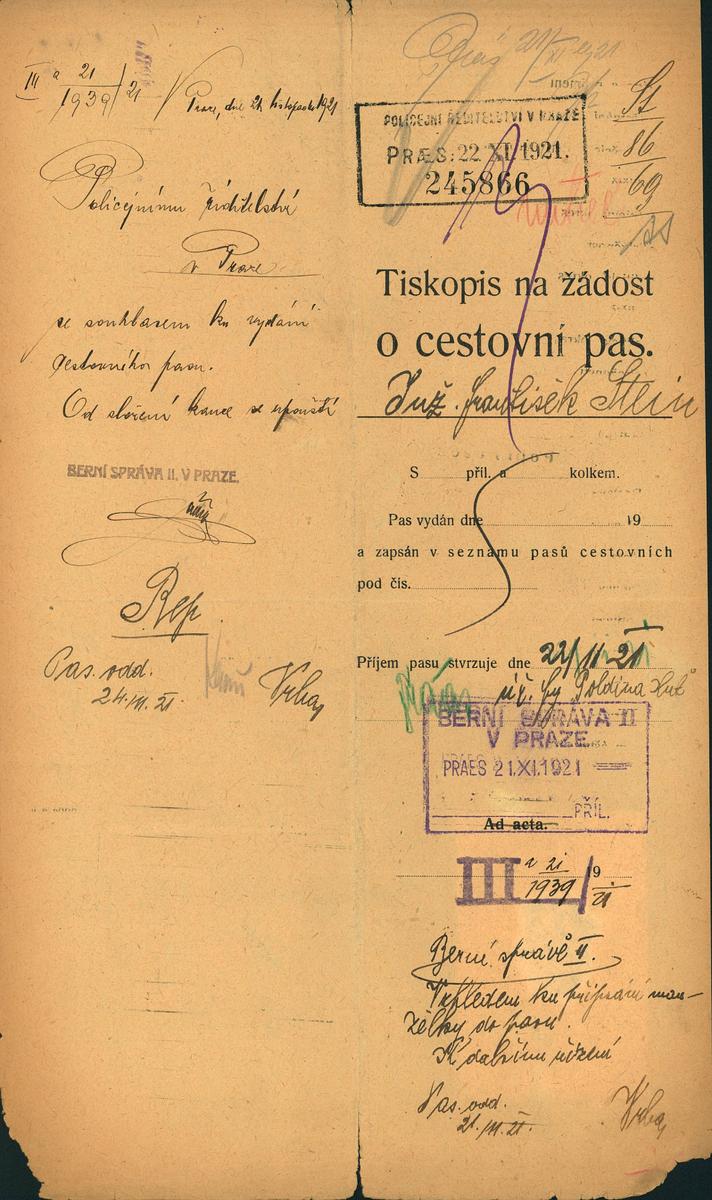 III a 21/1939/21
V Praze, dne 21. listopadu 1921
Policejnímu ředitelství
v Praze
se souhlasem ku vydání
cestovního pasu.
Od složení kauce se upouští
BERNÍ SPRÁVA II. V PRAZE.
Rep
Pas. odd.
24./11. 21.
Vrba
21/XI 1921
POLICEJNÍ ŘEDITELSTVÍ V PRAZE
PRÆS: 22 XI. 1921.
245866
St
86
69
Tiskopis na žádost
o cestovní pas.
Inž. František Stein
S příl. a kolkem.
Pas vydán dne 19
a zapsán v seznamu pasů cestovních
pod čís.
Příjem pasu stvrzuje dne 22/11 21
úř. fy Poldina Huť
BERNÍ SPRÁVA II
V PRAZE
PRAES 21.XI.1921
PŘÍL.
Ad acta.
III a 21/1939/21
19
Berní správě II.
Vzhledem ku připsání man-
želky do pasu.
K dalšímu řízení
Pas. odd.
21./11. 21.
Vrba